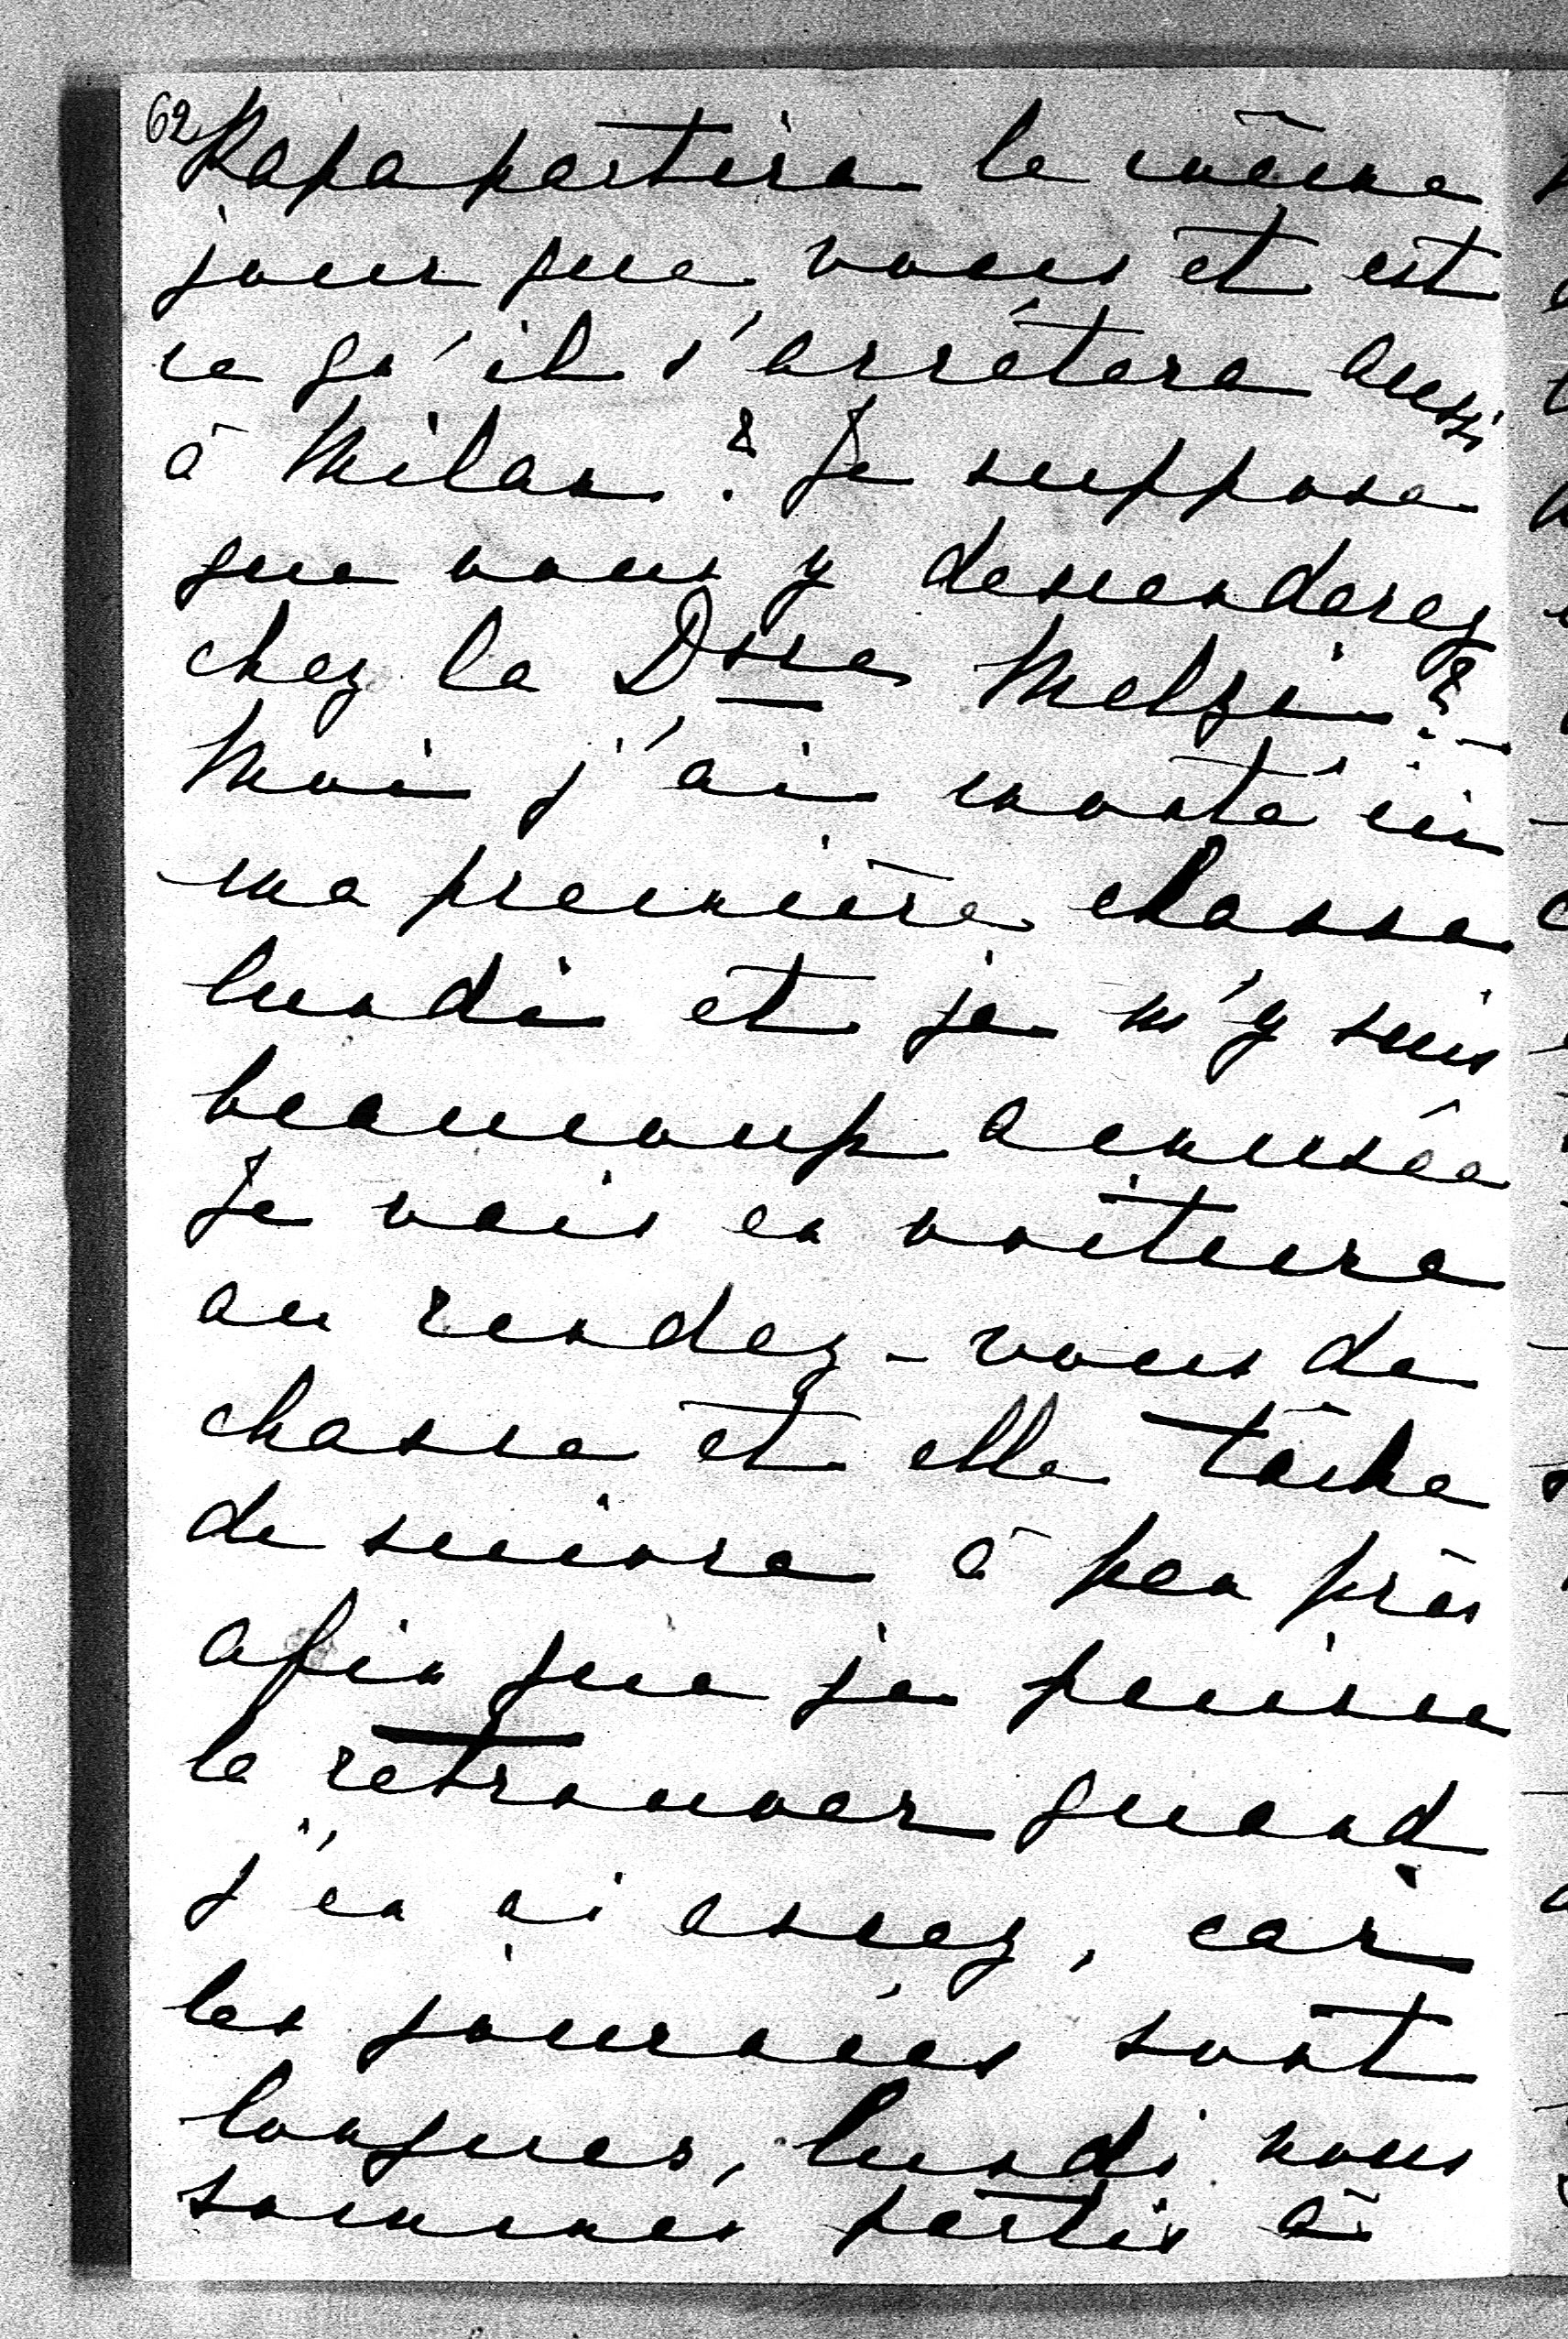 62
Papa partira le même
jour que vous et est
ce qu'il s'arrêtera aussi
à Milan ? Je suppose
que vous y descenderez
chez la Dsse Melzi ? —
Moi j'ai monté ici
ma première chasse
lundi et je m'y suis
beaucoup amusée
Je vais en voiture
au rendez-vous de
chasse et elle tâche
de suivre à peu près
afin que je puisse
la retrouver quand
j'en ai assez, car
les journées sont
longues, lundi nous
sommes partis à